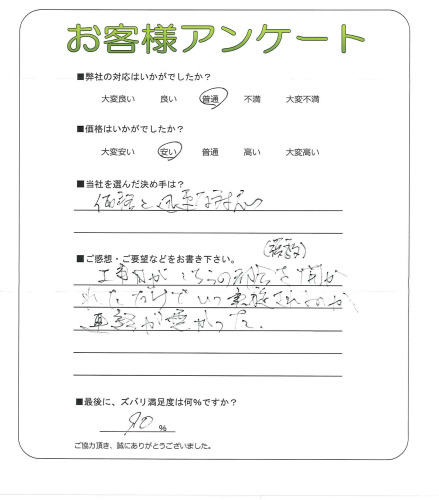 お客様アンケート
■弊社の対応はいかがでしたか？
大変良い 良い 普通 不満 大変不満
■価格はいかがでしたか？
大変安い 安い 普通 高い 大変高い
■当社を選んだ決め手は？
価格と迅速な対応
■ご感想・ご要望などをお書き下さい。
工事日が こちらの予定を聞か
れただけで いつ 実施されるのか
連絡が悪かった.
■最後に、ズバリ満足度は何％ですか？
90 ％
ご協力頂き、誠にありがとうございました。